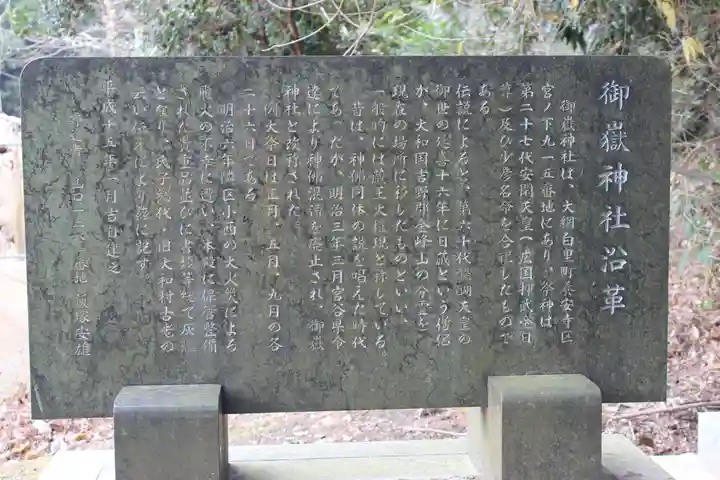 御嶽神社沿革
御嶽神社は、大網白里町養安寺区
宮ノ下九一五番地にあり、祭神は
第二十七代安閑天皇（広国押武金日
尊）及び少彦名命を合祀したもので
ある。
伝説によると、第六十代醍醐天皇の
御世の延喜十六年に日蔵という僧侶
が、大和国吉野郡金峰山の分霊を
現在の場所に移したものといい、
一般的には蔵王大権現と称している。
昔は、神佛同体の説を唱えた時代
であったが、明治三年三月宮谷県令
達により神佛混淆を廃止され、御嶽
神社と改称された。
例大祭日は正月、五月、九月の各
二十六日である。
明治六年隣区小西の大火災による
飛火の不幸に遭い、本殿に保管整備
された貴重品並びに書類等総て灰
となり、氏子総代・旧大和村古老の
云い伝えにより茲に記す。
平成十五年一月吉日建之
番地 飯塚安雄